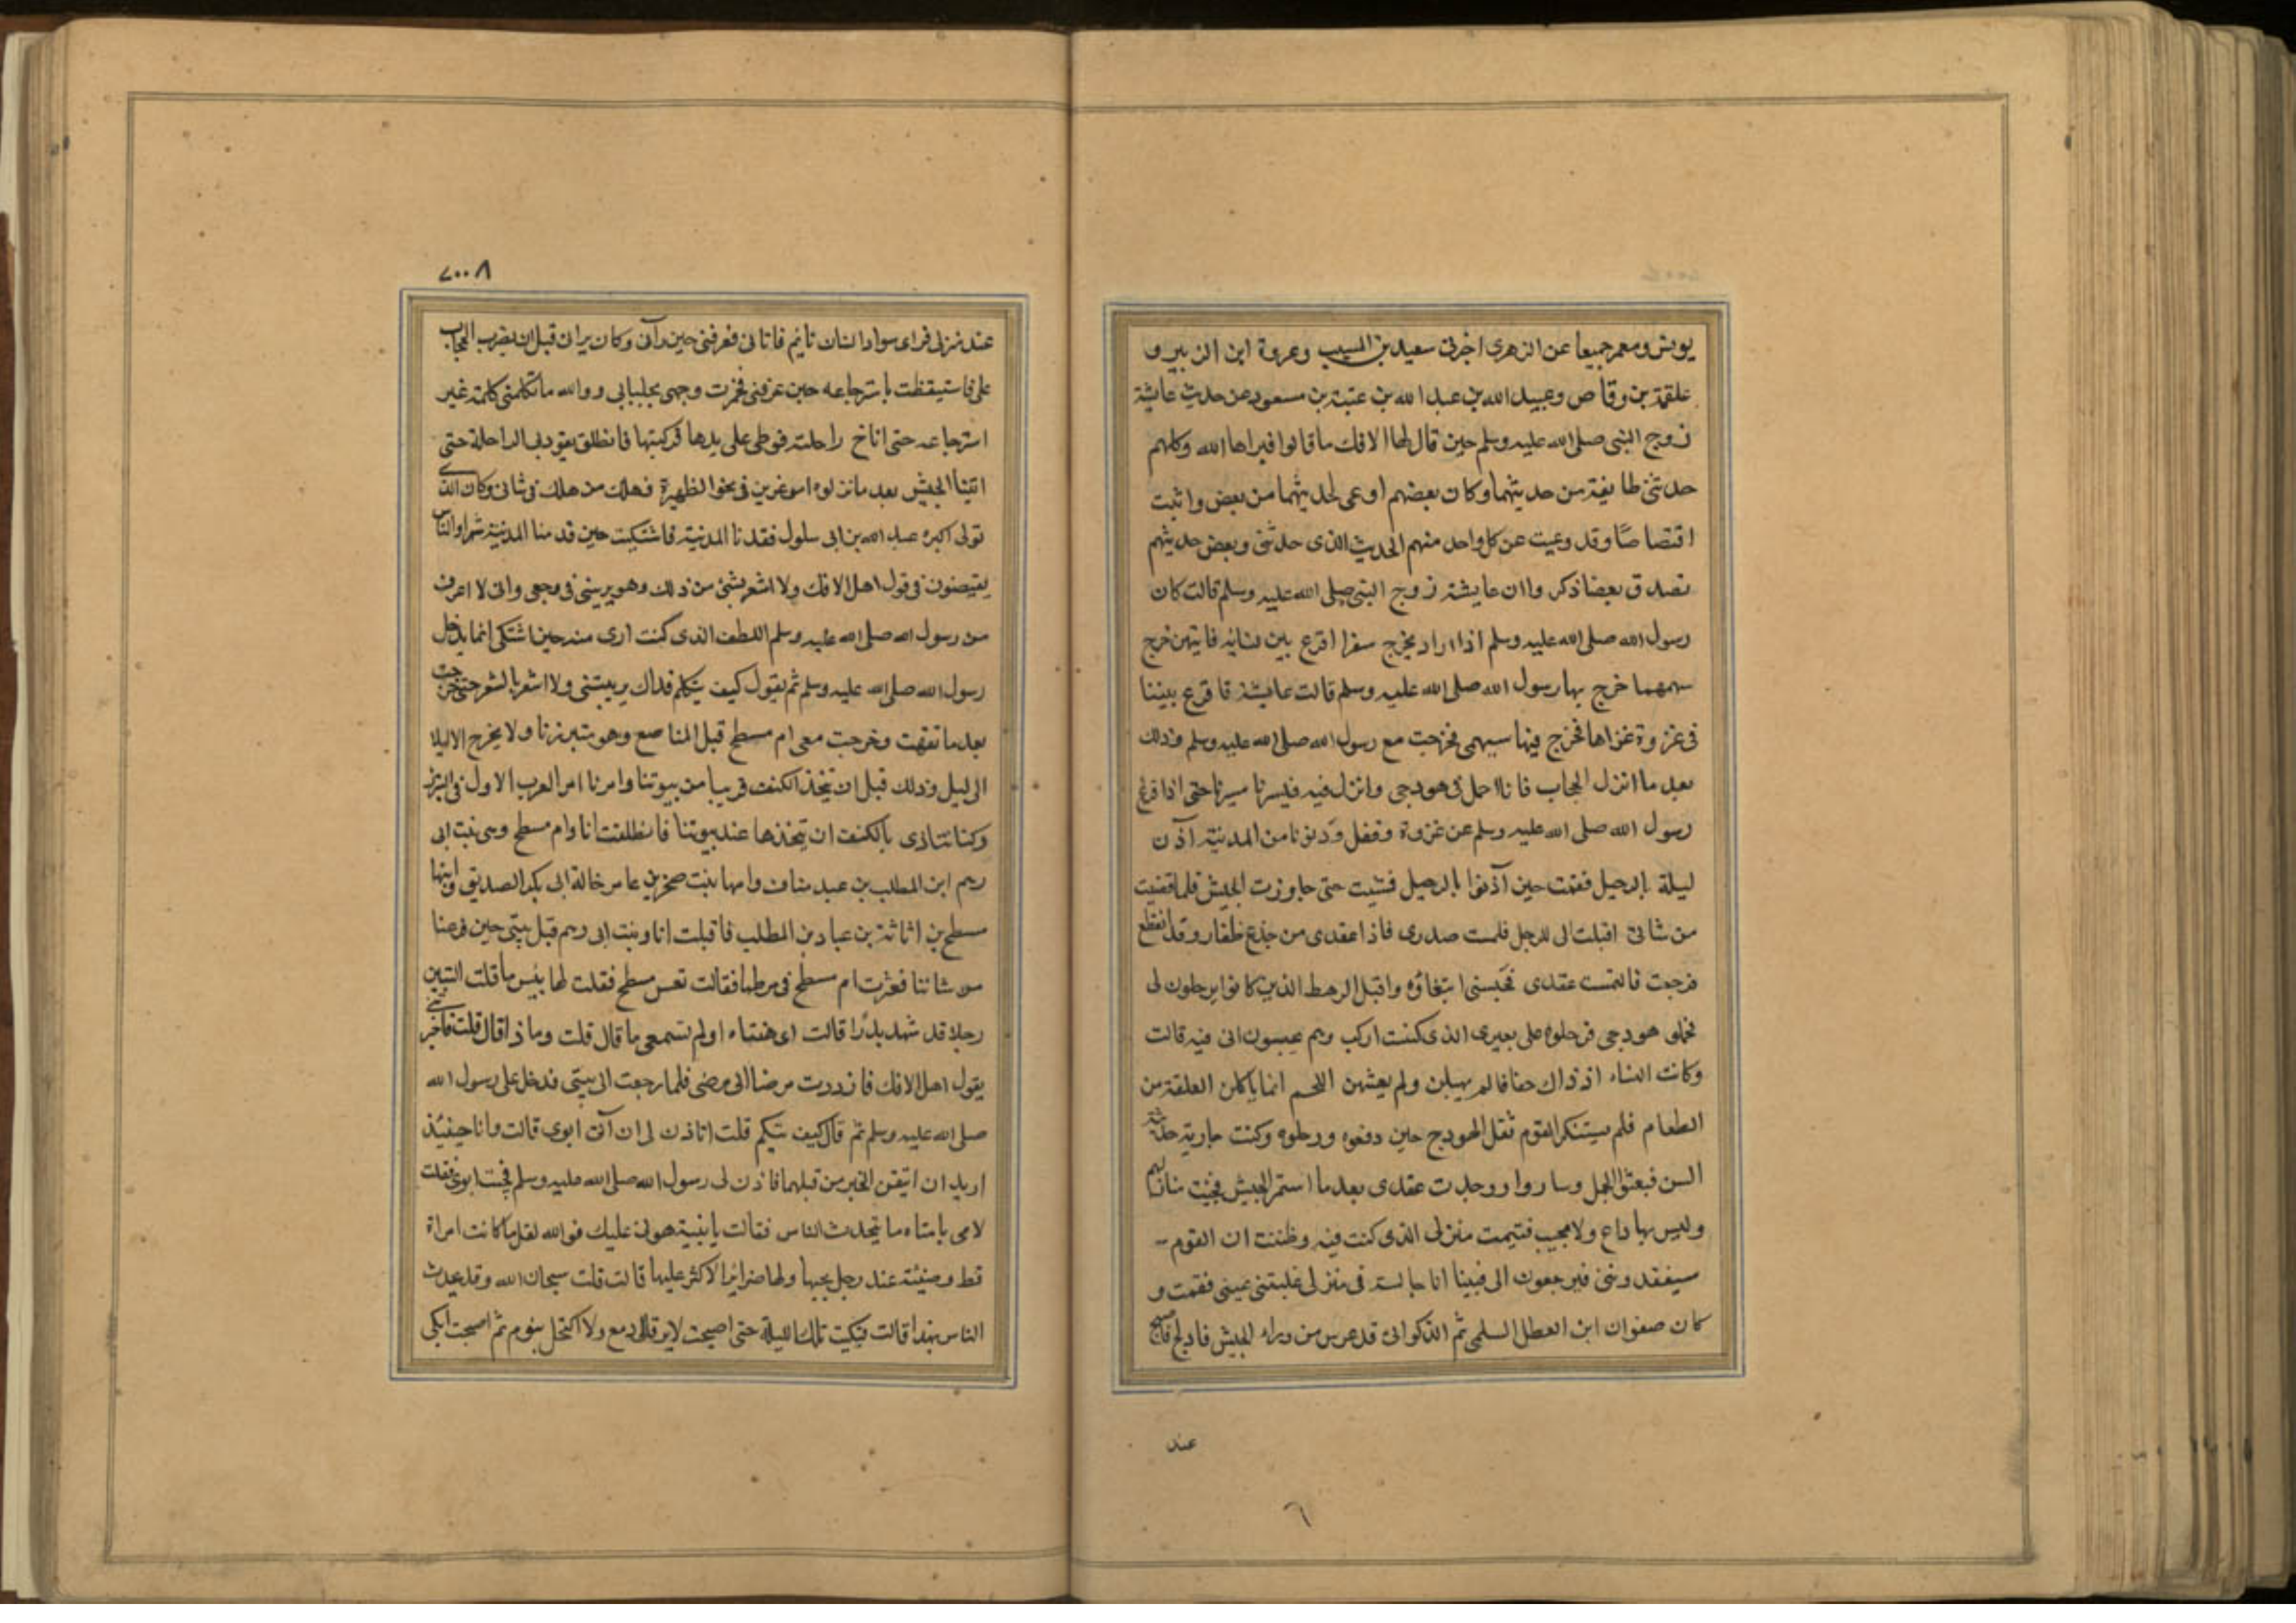 يونس ومعمر جميعا عن الزهرى اخبرنى سعيد بن المسيب وعروة ابن الزبير و
علقمة بن وقاص وعبيد الله بن عبد الله بن عتبة بن مسعود عن حديث عايشة
زوج النبى صلى الله عليه وسلم حين قال لها الافك ما قالوا فبراها الله وكلهم
حدثنى طايفة من حديثهما وكان بعضهم اوعى لحديثهما من بعض واثبت
اقتصاصا وقد وعيت عن كل واحد منهم الحديث الذى حدثنى وبعض حديثهم
تصدق بعضا ذكروا ان عايشة زوج النبى صلى الله عليه وسلم قالت كان
رسول الله صلى الله عليه وسلم اذا اراد يخرج سفرا اقرع بين نسائه فايتهن خرج
سهمهما خرج بها رسول الله صلى الله عليه وسلم قالت عايشة فاقرع بيننا
فى غزوة غزاها فخرج فيها سهمى فخرجت مع رسول الله صلى الله عليه وسلم وذلك
بعد ما انزل الحجاب فانا احمل فى هودجى وانزل فيه فيسرنا سيرنا حتى اذا فرغ
رسول الله صلى الله عليه وسلم عن غزوة وقفل ودنونا من المدينة آذن
ليلة بالرحيل فقمت حين آذنوا بالرحيل فمشيت حتى جاوزت الجيش فلما قضيت
من شانى اقبلت الى الرحل فلمست صدرى فاذا عقدى من جذع ظفار وقد انقطع
فرجعت فالتمست عقدى فحبسنى ابتغاؤه واقبل الرهط الذين كانوا يرحلون لى
فحملو هودجى فرحلوه على بعيرى الذى كنت اركب وهم يحبسون انى فيه قالت
وكانت النساء اذ ذاك خفافا لم يهبلن ولم يعشهن اللحم انما ياكلن العلقة من
الطعام فلم يستنكر القوم ثقل الهودج حين دفعوه ورحلوه وكنت جارية حديثة
السن فبعثوا الجمل وساروا ووجدت عقدى بعد ما استمر الجيش فجيت منازلهم
وليس بها داع ولا مجيب فتيمت منزلى الذى كنت فيه وظننت ان القوم
سيفقدوننى فيرجعون الى فبينا انا جالسة فى منزلى غلبتنى عينى فقمت و
كان صفوان ابن المعطل السلمى ثم الذكوانى قد عرس من وراء الجيش فادلج فاصبح
عند
٦
٢٠٠٨
عند منزلى فراى سواد انسان نايم فاتانى فعرفنى حين رآنى وكان يرانى قبل ان يضرب الحجاب
على فاستيقظت باسترجاعه حين عرفنى فخمرت وجهى بجلبابى ووالله ما تكلمنى كلمة غير
استرجاعه حتى اناخ راحلته فوطى على يدها فركبتها فانطلق يقود بى الراحلة حتى
اتينا الجيش بعد ما نزلوه اموغرين فى نحو الظهيرة فهلك من هلك فى شانى وكان الذى
تولى اكبره عبد الله بن ابى سلول فقدنا المدينة فاشتكيت حين قدمنا المدينة شهرا والناس
يفيضون فى قول اهل الافك ولا اشعر بشئ من ذلك وهو يريبنى فى وجعى وانى لا اعرف
من رسول الله صلى الله عليه وسلم اللطف الذى كنت ارى منه حين اشتكى انما يدخل
رسول الله صلى الله عليه وسلم ثم يقول كيف يتكلم فذاك يريبتنى ولا اشعر بالشعر حتى خرجت
بعد ما نقهت وخرجت معى ام مسطح قبل المناصع وهو متبرزنا ولا يخرج الا ليلا
الى ليل وذلك قبل ان يتخذ الكنف قريبا من بيوتنا وامرنا امر العرب الاول فى التبرز
وكنا نتاذى بالكنف ان يتخذها عند بيوتنا فانطلقت انا وام مسطح وهى بنت ابى
رهم ابن المطلب بن عبد مناف وامها بنت صخر بن عامر خالة ابى بكر الصديق وابنها
مسطح بن اثاثة بن عباد بن المطلب فاقبلت انا وبنت ابى رهم قبل بيتى حين فرغنا
من شاننا فعثرت ام مسطح فى مرطها فقالت تعس مسطح فقلت لها بئس ما قلت اتسبين
رجلا قد شهد بدرا قالت اى هنتاه اولم تسمعى ما قال قلت وماذا قال قلت فاخبرتنى
يقول اهل الافك فازددت مرضا الى مرضى فلما رجعت الى بيتى فدخل على رسول الله
صلى الله عليه وسلم ثم قال كيف يتكم قلت اتاذن لى ان آتى ابوى قالت وانا حينئذ
اريد ان اتيقن الخبر من قبلهما فاذن لى رسول الله صلى الله عليه وسلم فجئت ابوى فقلت
لامى يا متاه ما يتحدث الناس فقالت يا بنية هونى عليك فوالله لقل ما كانت امراة
قط وضيئة عند رجل يحبها ولها ضرائر الا كثر عليها قالت قلت سبحان الله وقد يحدث
الناس بهذا قالت فبكيت تلك الليلة حتى اصبحت لا يرقا لى دمع ولا اكتحل بنوم ثم اصبحت ابكى